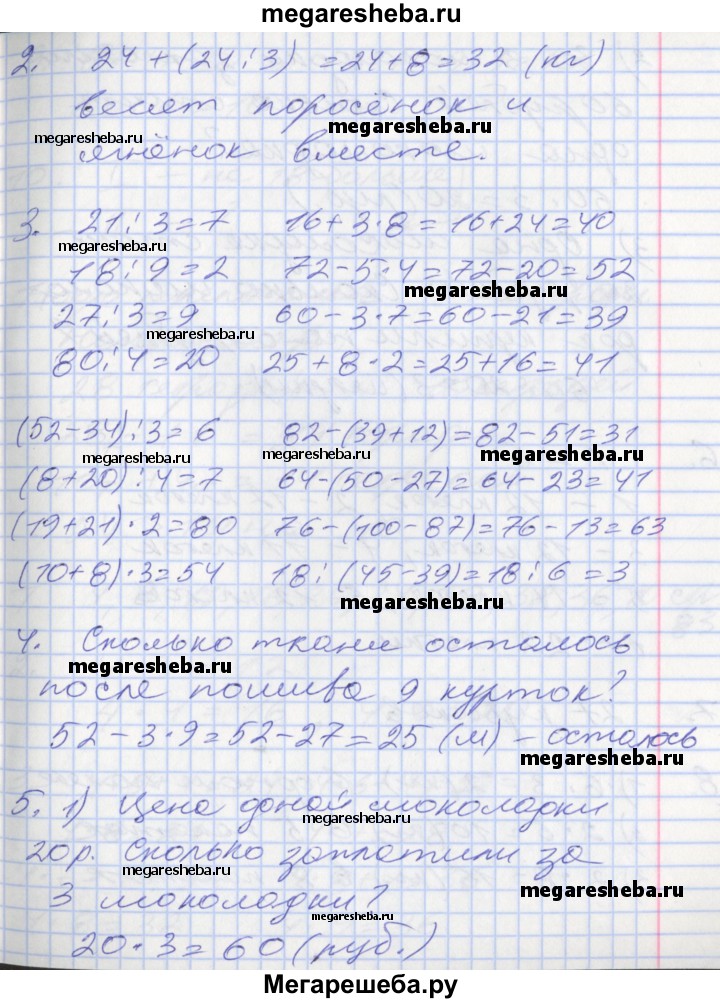 megaresheba.ru
2. 24 + (24 : 3) = 24 + 8 = 32 (кг)
весят поросёнок и
megaresheba.ru megaresheba.ru
ягнёнок вместе.
3. 21 : 3 = 7 16 + 3 · 8 = 16 + 24 = 40
megaresheba.ru
18 : 9 = 2 72 - 5 · 4 = 72 - 20 = 52
megaresheba.ru
27 : 3 = 9 60 - 3 · 7 = 60 - 21 = 39
megaresheba.ru
80 : 4 = 20 25 + 8 · 2 = 25 + 16 = 41
(52 - 34) : 3 = 6 82 - (39 + 12) = 82 - 51 = 31
megaresheba.ru megaresheba.ru
(8 + 20) : 4 = 7 64 - (50 - 27) = 64 - 23 = 41
(19 + 21) · 2 = 80 76 - (100 - 87) = 76 - 13 = 63
(10 + 8) · 3 = 54 18 : (45 - 39) = 18 : 6 = 3
megaresheba.ru
4. Сколько ткани осталось
megaresheba.ru
после пошива 9 курток?
52 - 3 · 9 = 52 - 27 = 25 (м) - осталось
megaresheba.ru
5. 1) Цена доной шоколадки
megaresheba.ru
20 р. Сколько заплатили за
megaresheba.ru megaresheba.ru
3 шоколадки?
megaresheba.ru
20 · 3 = 60 (руб.)
Мегарешеба.ру